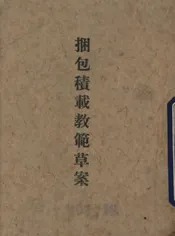 捆包積載教範草案